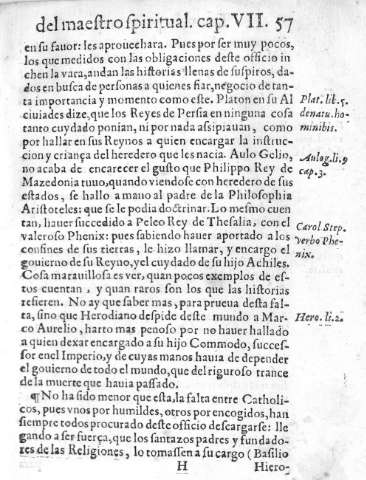 del maestro spiritual. cap. VII. 57
en su fauor: les aprouechara. Pues por ser muy pocos,
los que medidos con las obligaciones deste officio in
chen la vara, andan las historias llenas de suspiros, da-
dos en busca de personas a quienes fiar, negocio de tan-
ta importancia y momento como este. Platon en su Al
ciuiades dize, que los Reyes de Persia en ninguna cosa
tanto cuydado ponian, ni por nada assi piauan, como
por hallar en sus Reynos a quien encargar la instruc-
cion y criança del heredero que les nacia. Aulo Gelio,
no acaba de encarecer el gusto que Philippo Rey de
Mazedonia tuuo, quando viendose con heredero de sus
estados, se hallo a mano al padre de la Philosophia
Aristoteles: que se le podia doctrinar. Lo mesmo cuen
tan, hauer succedido a Peleo Rey de Thesalia, con el
valeroso Phenix: pues sabiendo hauer aportado a los
confines de sus tierras, le hizo llamar, y encargo el
gouierno de su Reyno, y el cuydado de su hijo Achiles.
Cosa marauillosa es ver, quan pocos exemplos de es-
tos cuentan, y quan raros son los que las historias
refieren. No ay que saber mas, para prueua desta fal-
ta, sino que Herodiano despide deste mundo a Mar-
co Aurelio, harto mas penoso por no hauer hallado
a quien dexar encargado a su hijo Commodo, succes-
sor en el Imperio, y de cuyas manos hauia de depender
el gouierno de todo el mundo, que del riguroso trance
de la muerte que hauia passado.
¶No ha sido menor que esta, la falta entre Catholi-
cos, pues vnos por humildes, otros por encogidos, han
siempre todos procurado deste officio descargarse: lle
gando a ser fuerça, que los santazos padres y fundado-
res de las Religiones, lo tomassen a su cargo (Basilio
H Hiero-
Plat. lib. 5.
de natu. ho-
minibis.
Aulog. li. 9
cap. 3.
Carol Step.
verbo Phe-
nix.
Hero. li. 2.